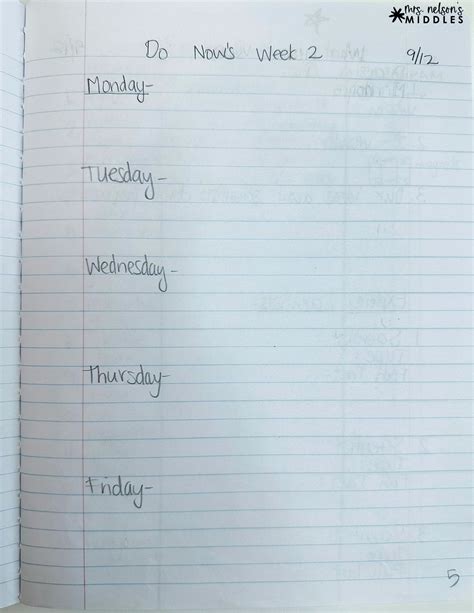 mrs. nelson's
MIDDLES
Do Now's Week 2 9/12
Monday-
Tuesday-
Wednesday-
Thursday-
Friday-
5